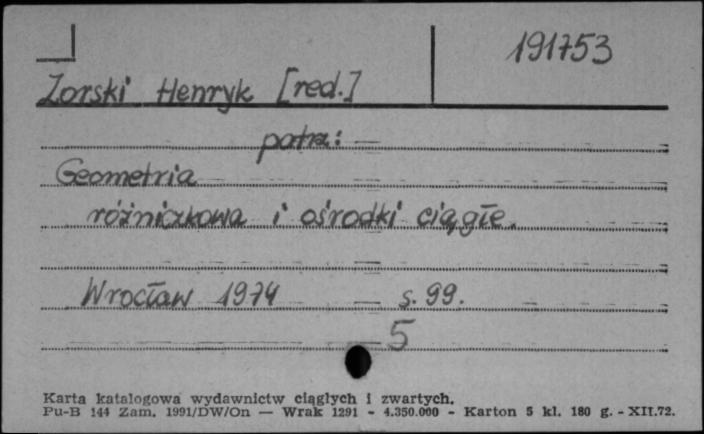 191753
Zorski Henryk [red.]
patrz:
Geometria
różniczkowa i ośrodki ciągłe.
Wrocław 1974 s. 99.
5
Karta katalogowa wydawnictw ciągłych i zwartych.
Pu-B 144 Zam. 1991/DW/On — Wrak 1291 - 4.350.000 - Karton 5 kl. 180 g. - XII.72.